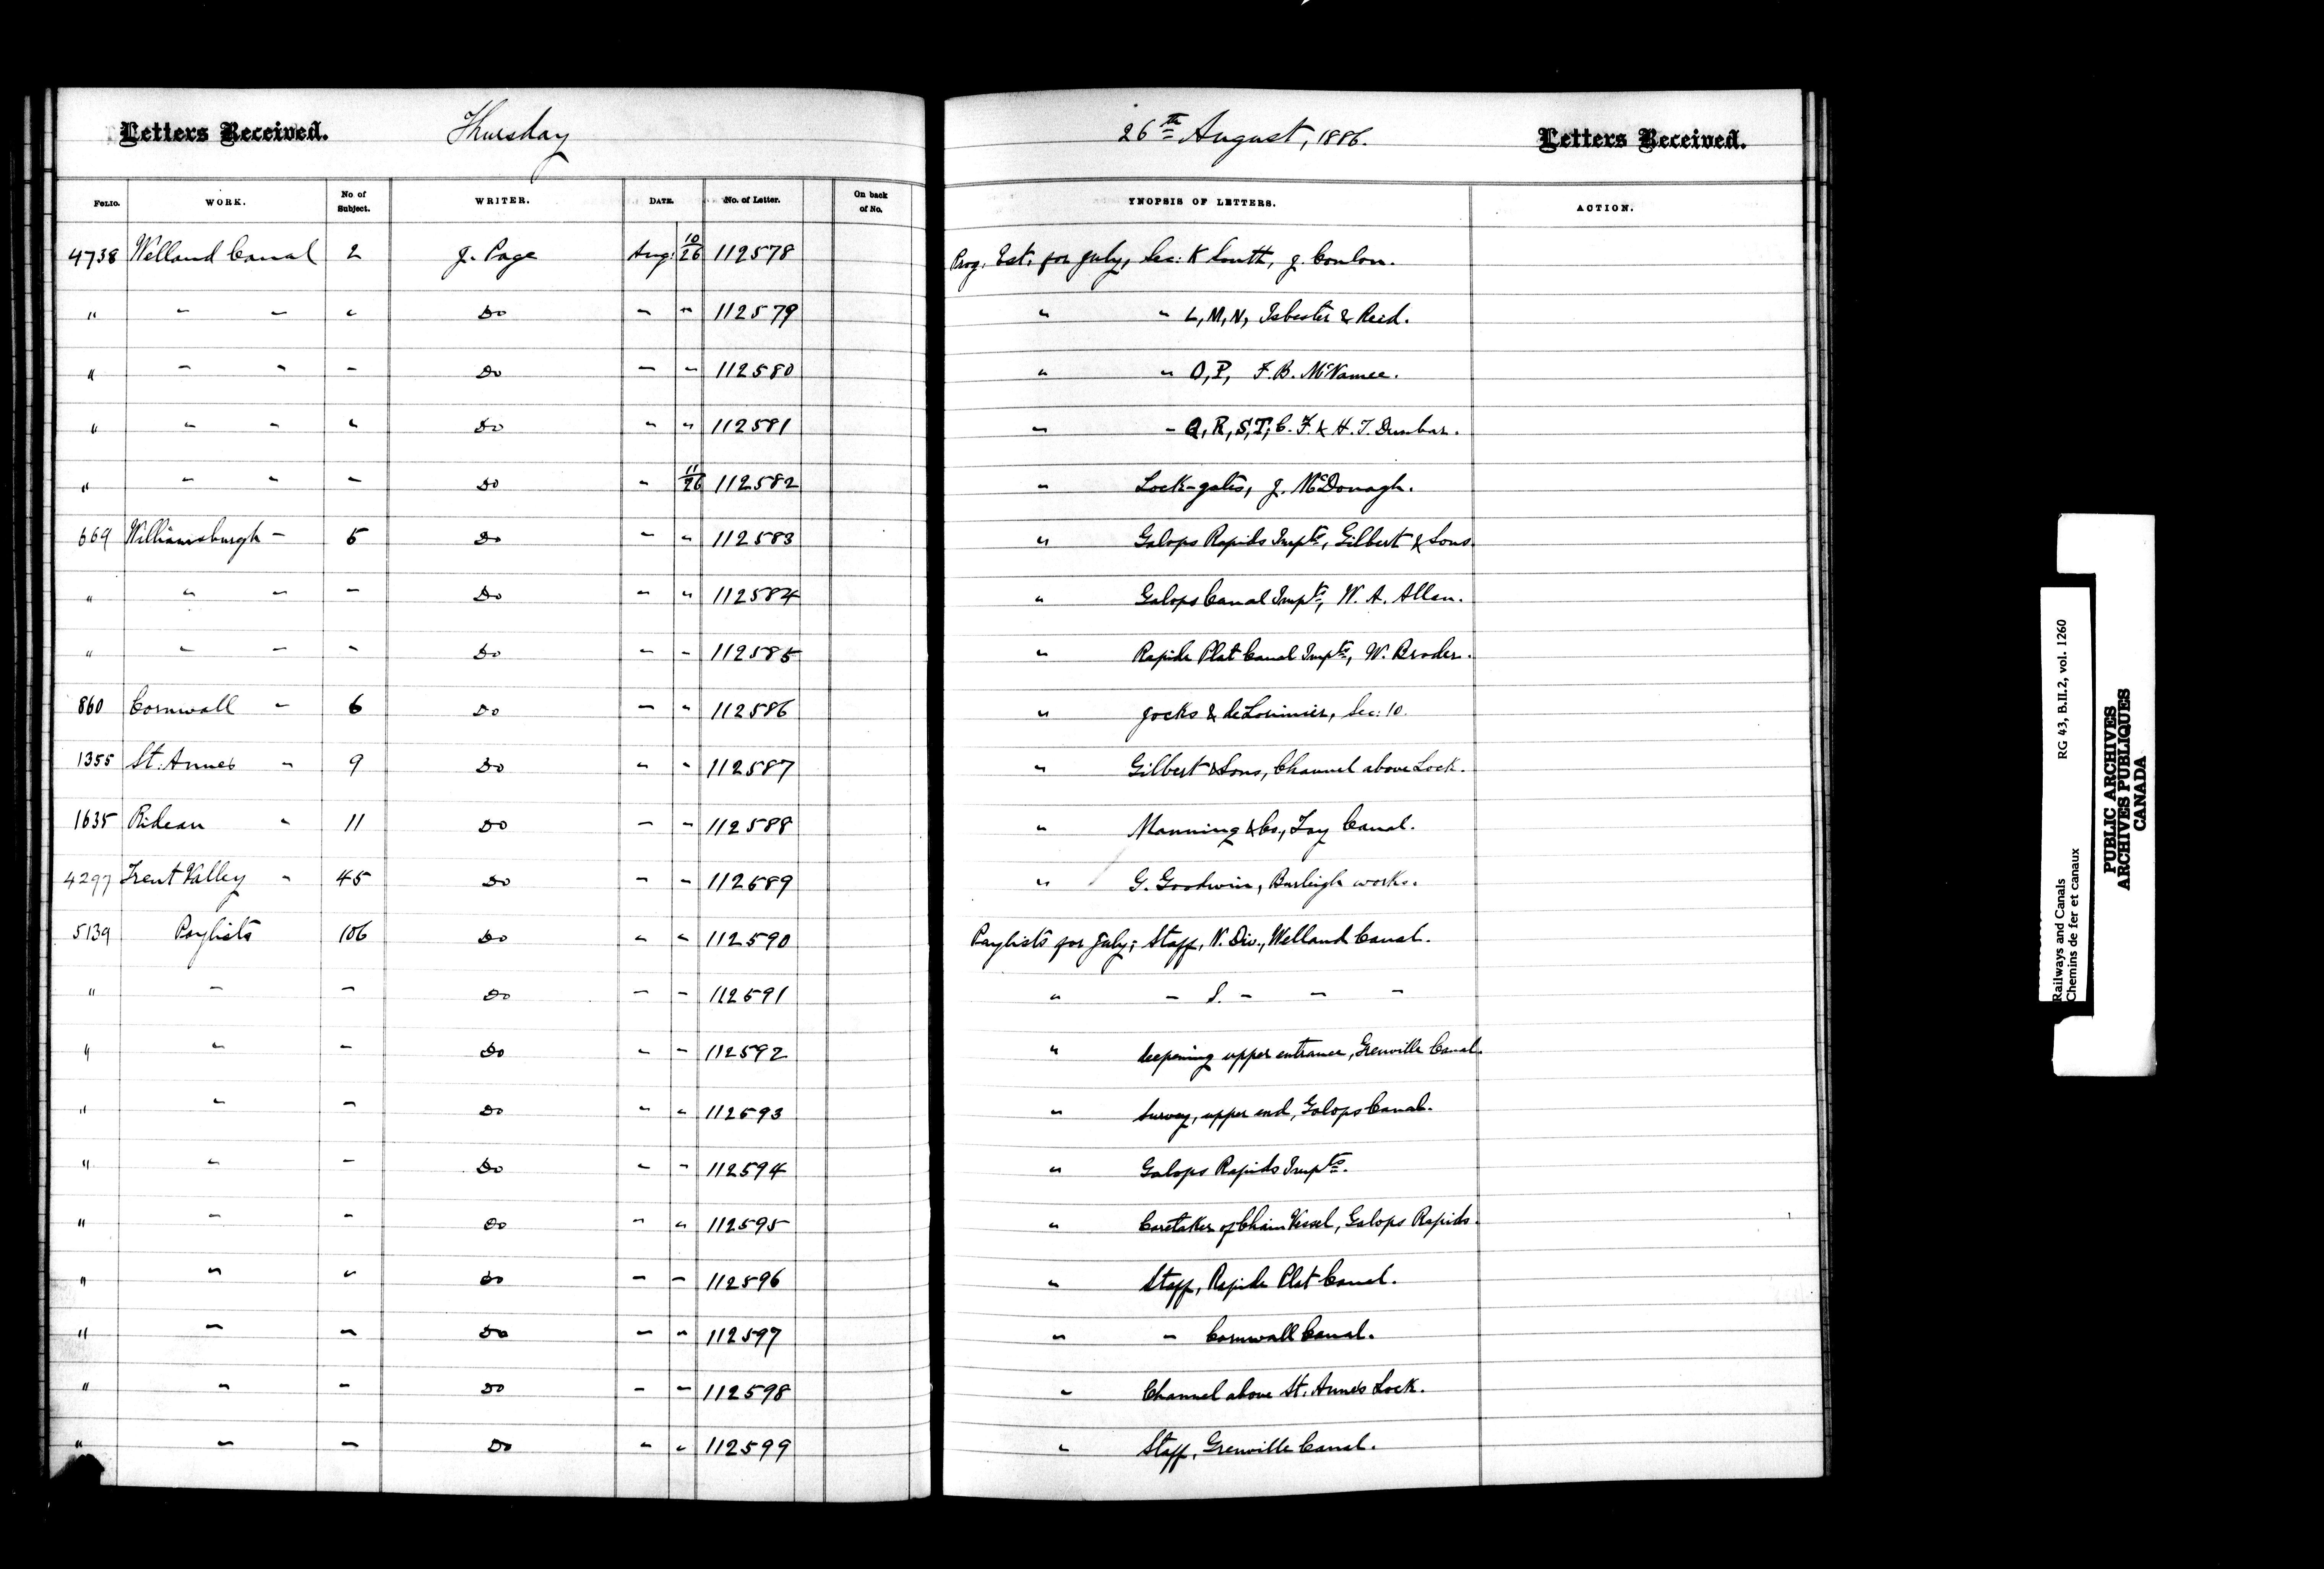 Letters Received. Thursday 26th August, 1886. Letters Received.
FOLIO. WORK. No of Subject. WRITER. DATE. No. of Letter. On back of No. YNOPSIS OF LETTERS. ACTION.
4738 Welland Canal 2 J. Page Aug. 10/26 112578 Prog. Est. for July, Sec. K South, J. Conlon.
" " " " Do " " 112579 " " L, M, N, Isbester & Reid.
" " " " Do " " 112580 " " O, P, F. B. McNamee.
" " " " Do " " 112581 " " Q, R, S, T, C. F. & H. T. Dunbar.
" " " " Do " 11/26 112582 " Lock-gates, J. McDonagh.
669 Williamsburgh " 5 Do " " 112583 " Galops Rapids Impts, Gilbert & Sons.
" " " " Do " " 112584 " Galops Canal Impts, W. A. Allan.
" " " " Do " " 112585 " Rapide Plat Canal Impts, W. Broder.
860 Cornwall " 6 Do " " 112586 " Jocks & deLorimier, Sec. 10.
1355 St. Annes " 9 Do " " 112587 " Gilbert & Sons, Channel above Lock.
1635 Rideau " 11 Do " " 112588 " Manning & Co., Tay Canal.
4297 Trent Valley " 45 Do " " 112589 " G. Goodwin, Burleigh works.
5139 Paylists 106 Do " " 112590 Paylists for July; Staff, N. Div., Welland Canal.
" " " Do " " 112591 " " S. " " "
" " " Do " " 112592 " deepening upper entrance, Grenville Canal.
" " " Do " " 112593 " Survey, upper end, Galops Canal.
" " " Do " " 112594 " Galops Rapids Impts.
" " " Do " " 112595 " Caretaker of Chain Vessel, Galops Rapids.
" " " Do " " 112596 " Staff, Rapide Plat Canal.
" " " Do " " 112597 " " Cornwall Canal.
" " " Do " " 112598 " Channel above St. Anne's Lock.
" " " Do " " 112599 " Staff, Grenville Canal.
Railways and Canals RG 43, B.II.2, vol. 1260
Chemins de fer et canaux
PUBLIC ARCHIVES
ARCHIVES PUBLIQUES
CANADA